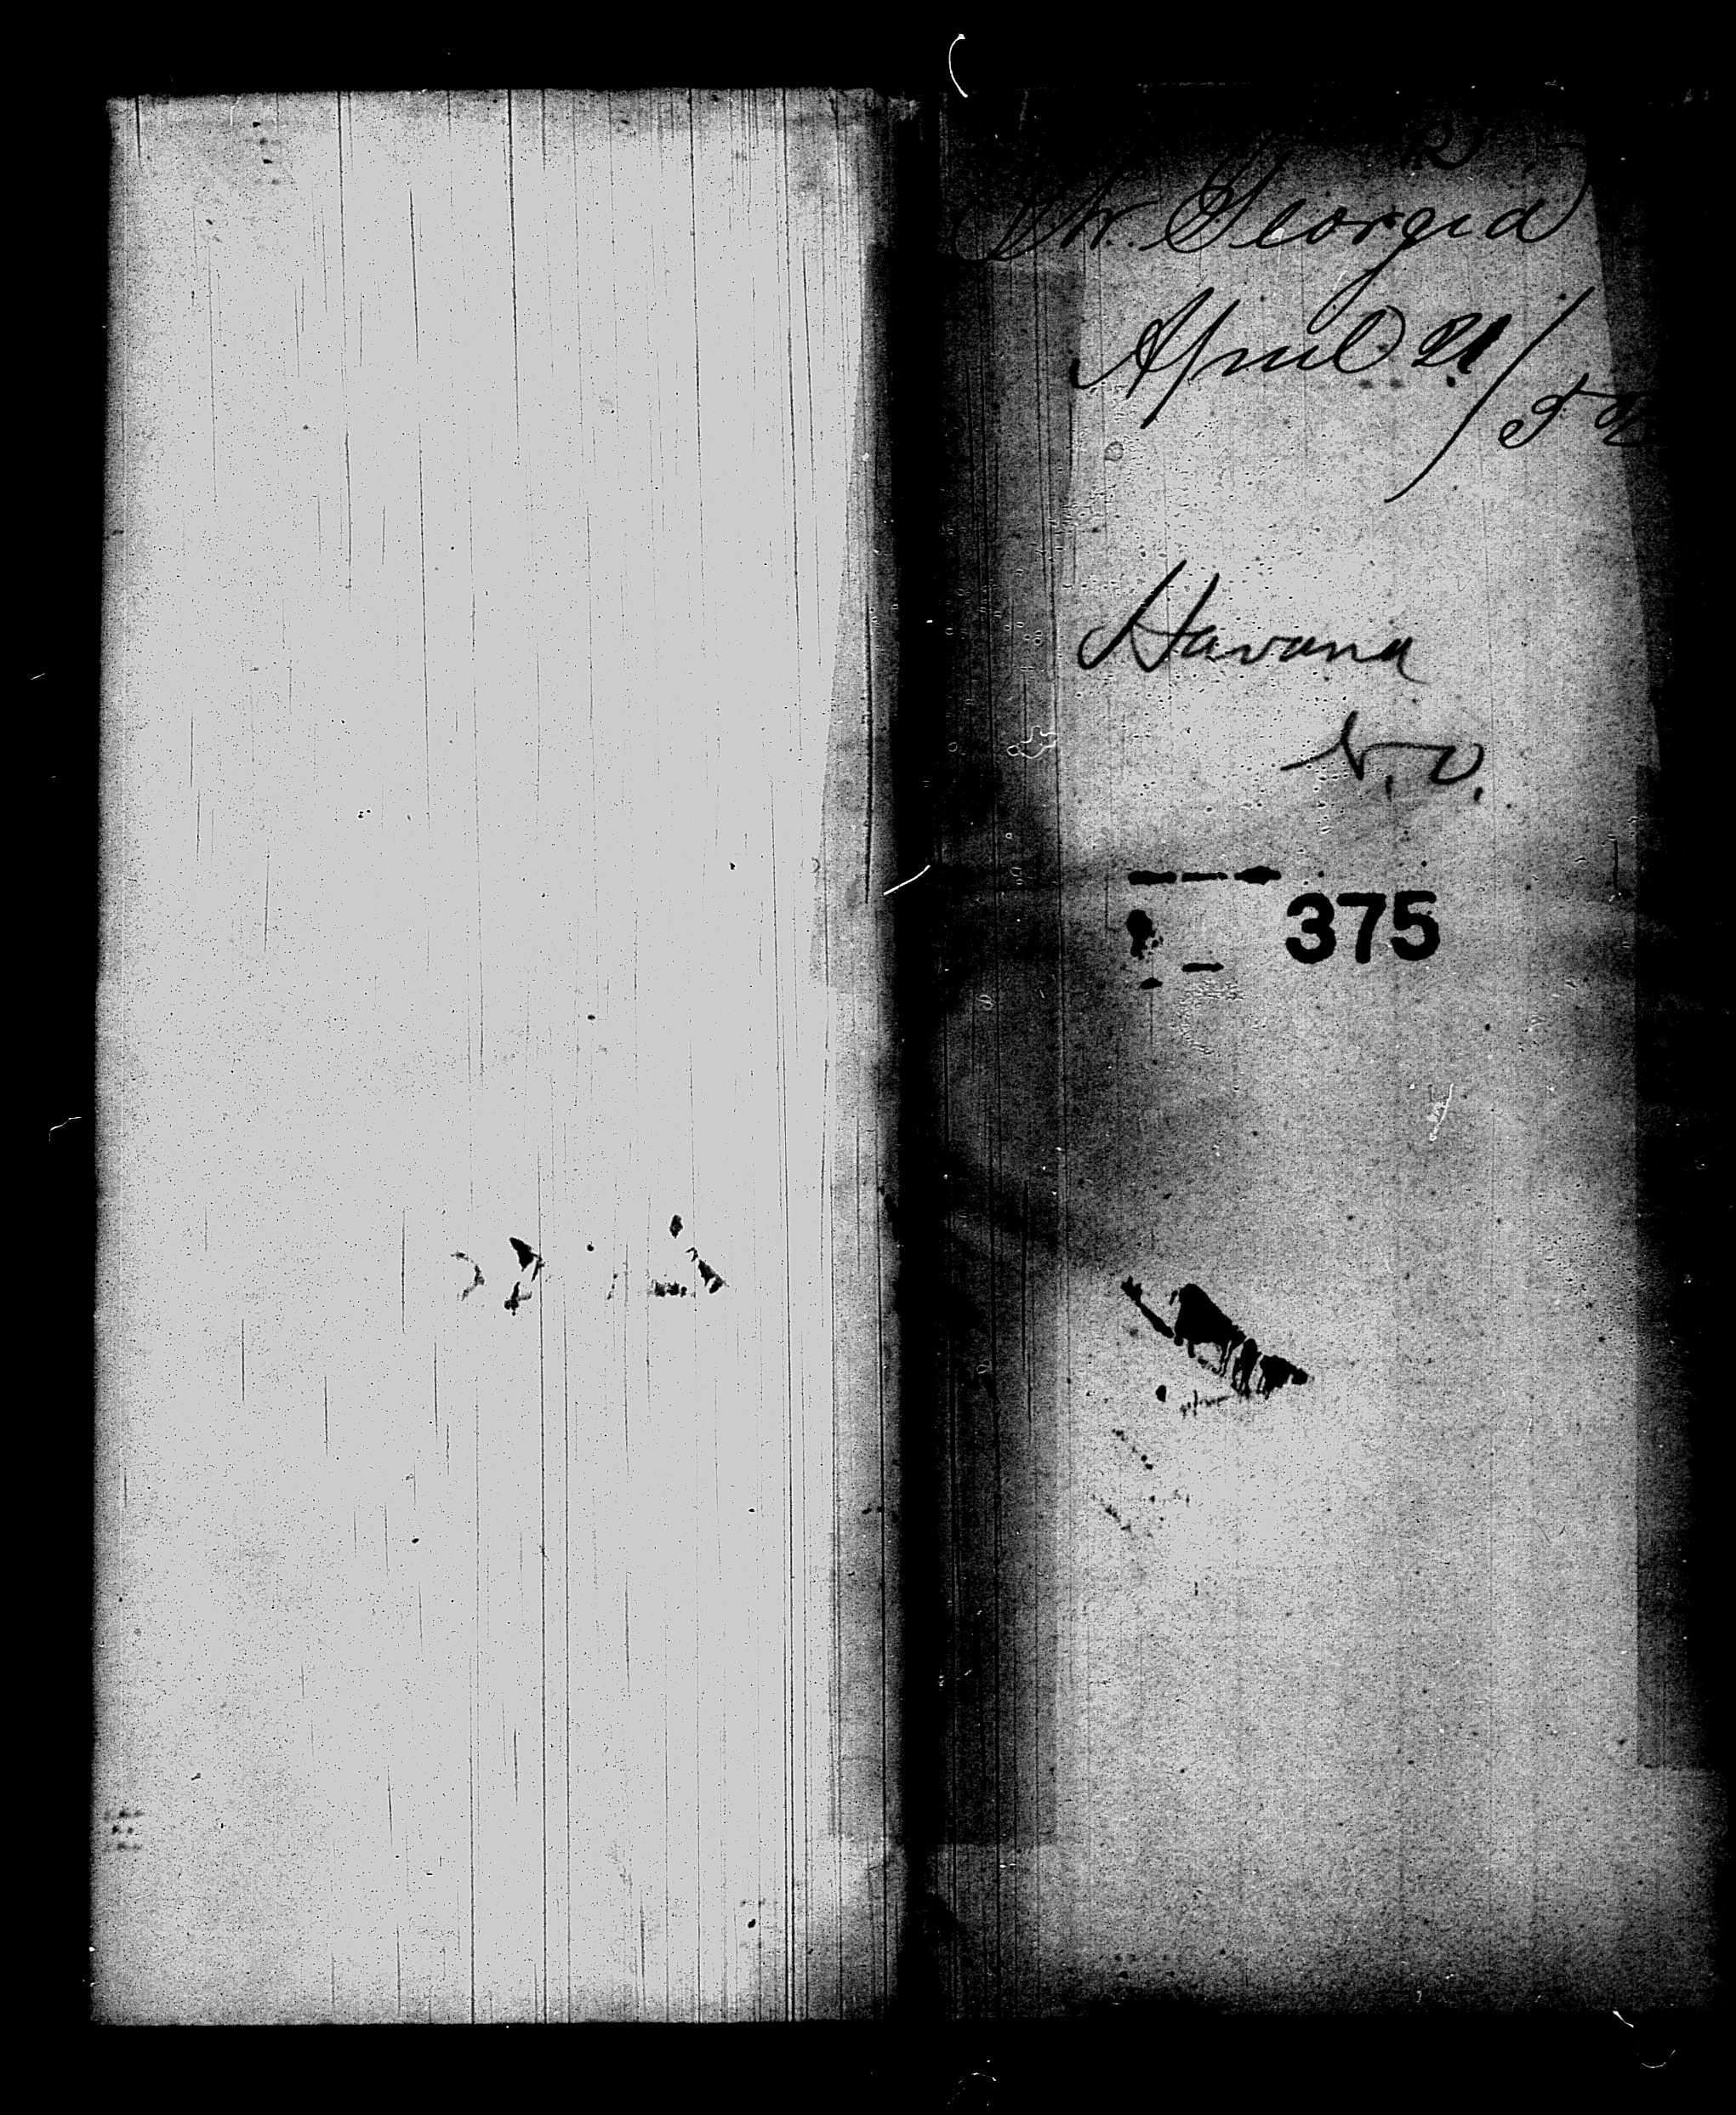 Str. Georgia
April 21/52
Havana
N.O.
375